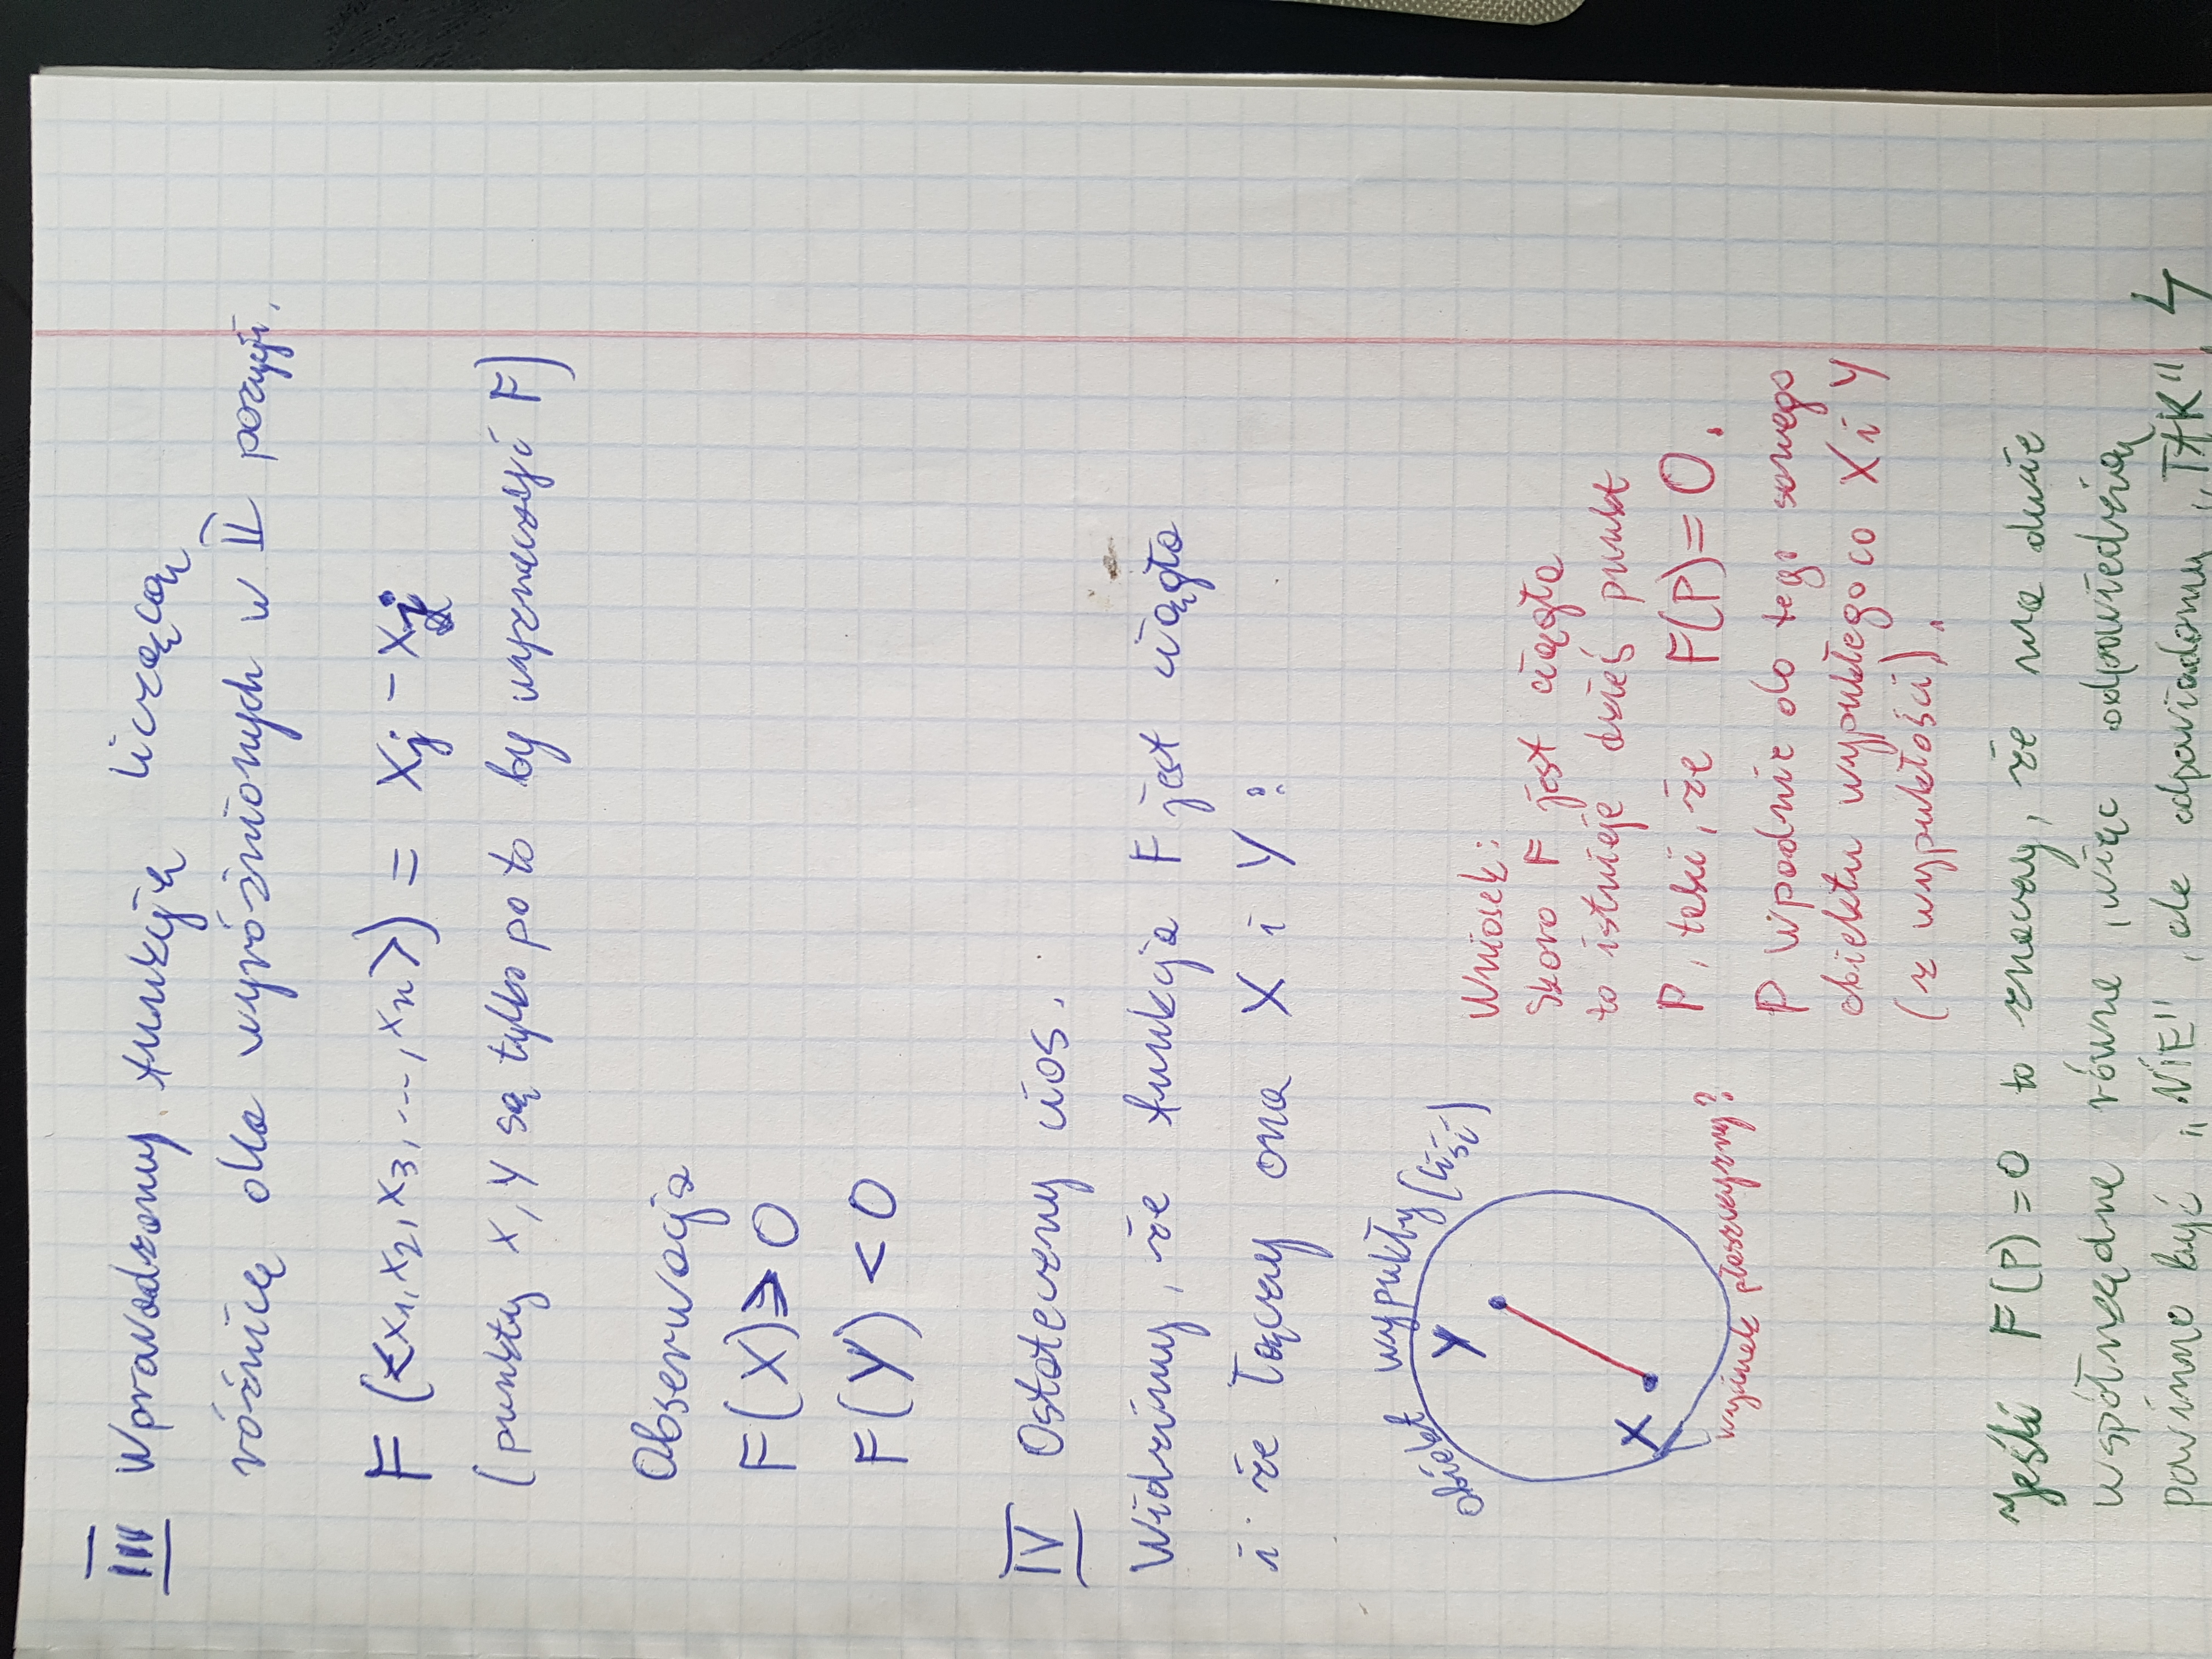 III Wprowadzamy funkcję liczącą
różnicę dla wyróżnionych w II pozycji.
F (<x₁, x₂, x₃, ..., xₙ>) = xⱼ - xⱼ
(punkty X, Y są tylko po to by wyznaczyć F)
Obserwacja
F(X) ≥ 0
F(Y) < 0
IV Ostateczny cios.
Widzimy, że funkcja F jest ciągła
i że łączy ona X i Y:
obiekt wypukły (liść)
Y
X
wycinek płaszczyzny?
Wniosek:
Skoro F jest ciągła
to istnieje gdzieś punkt
P, taki, że F(P) = 0.
P wpadnie do tego samego
obiektu wypukłego co X i Y
(z wypukłości).
Jeśli F(P) = 0 to znaczy, że ma dwie
współrzędne równe, więc odpowiedzią
powinno być „NIE", ale odpowiadamy „TAK"